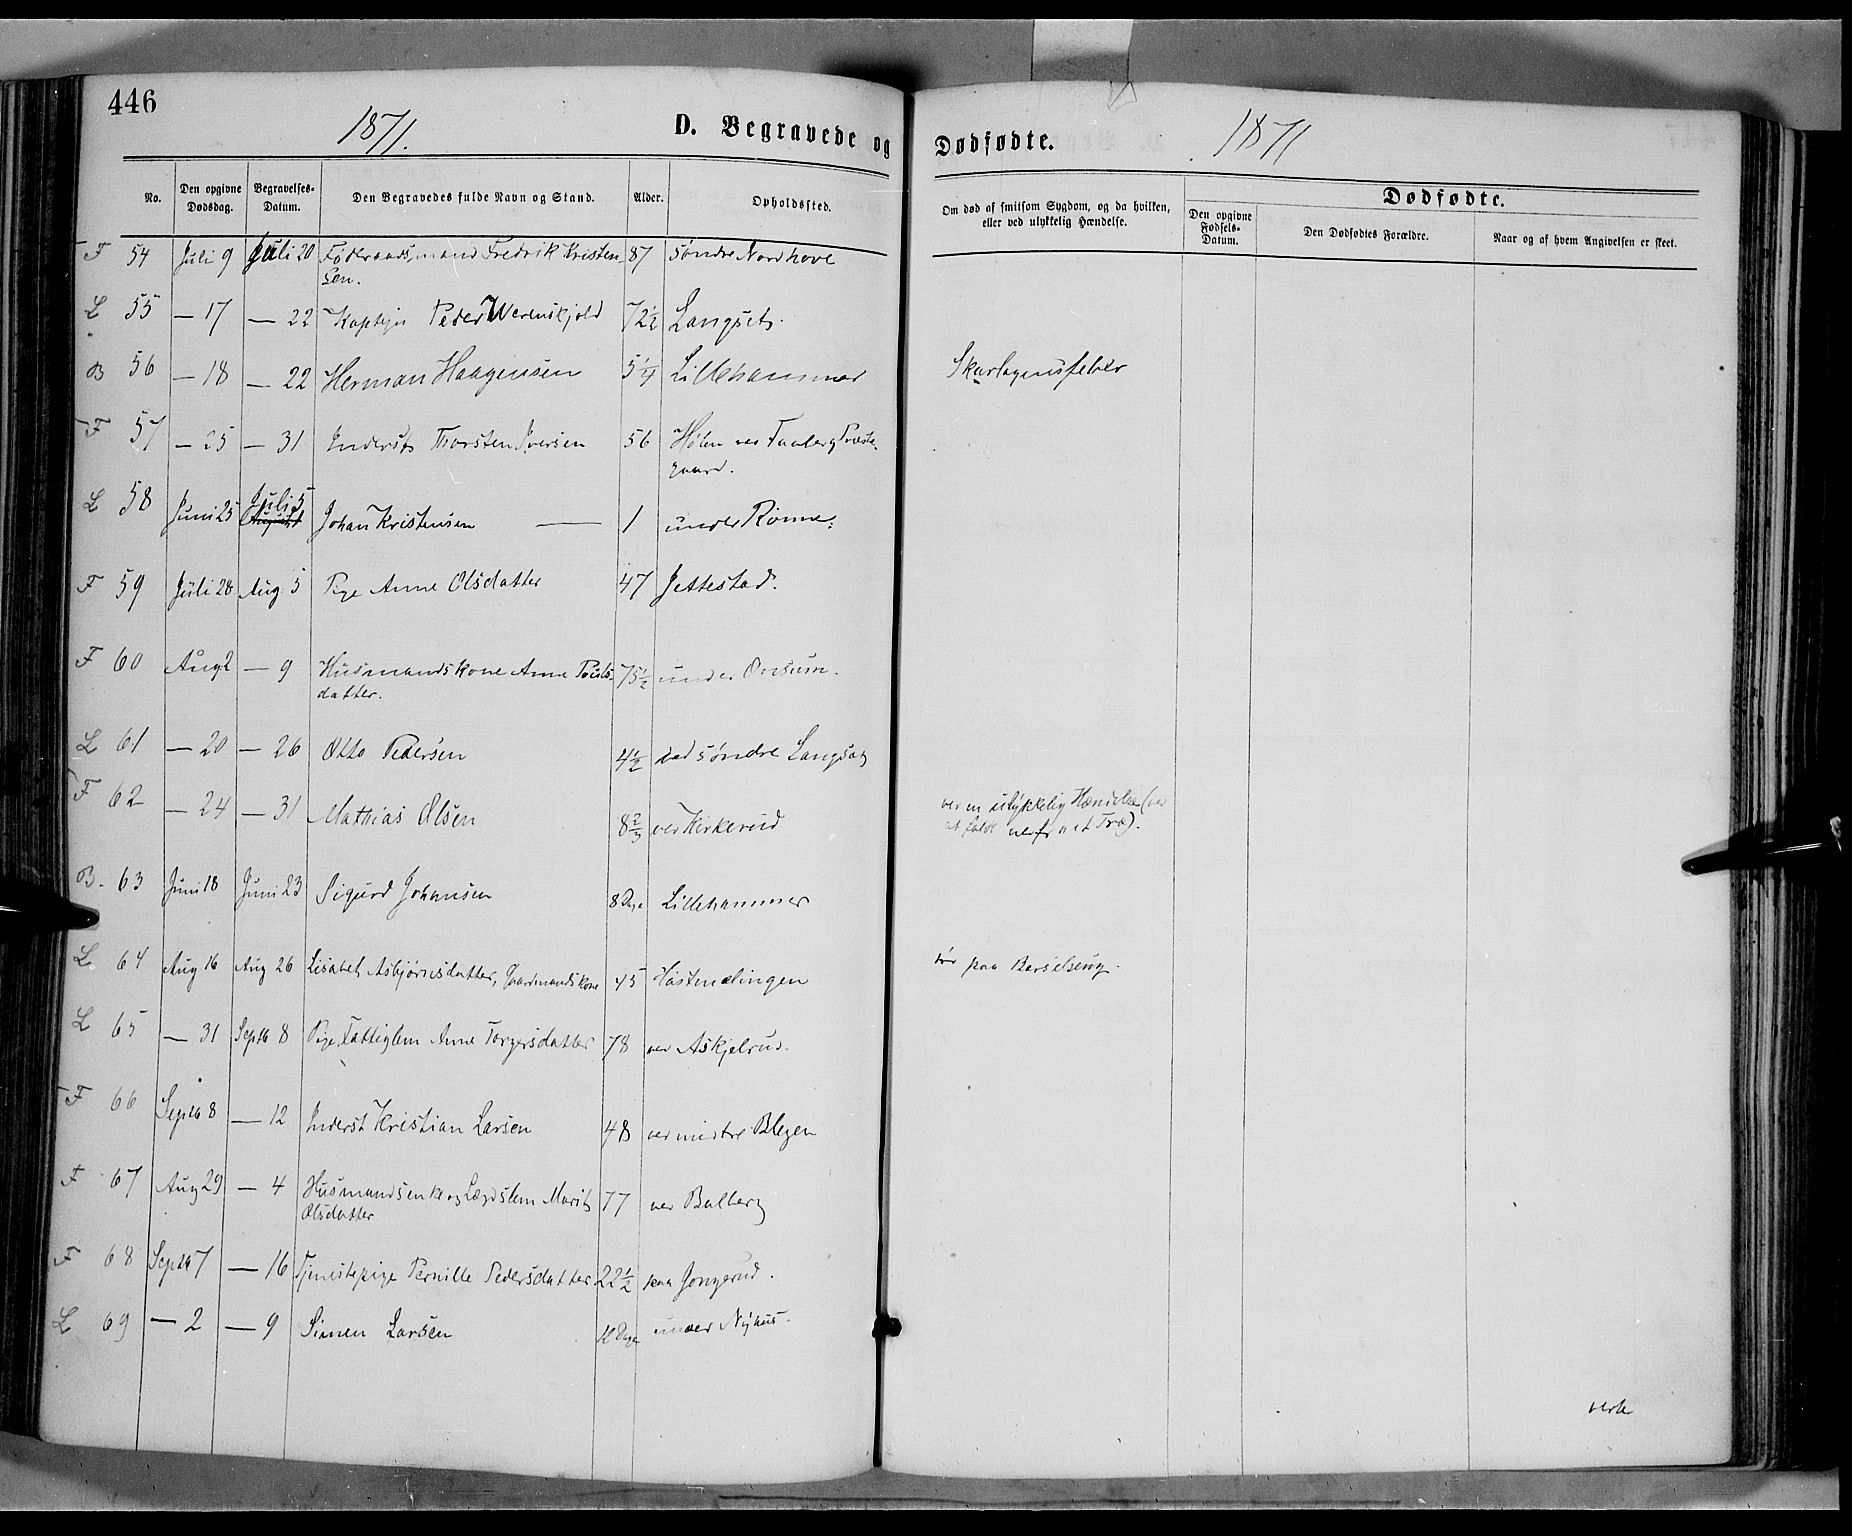 446
1871.
D. Begravede og
Dødfødte.
1871
No.
Den opgivne Dødsdag.
Begravelses-Datum.
Den Begravedes fulde Navn og Stand.
Alder.
Opholdssted.
Om død af smitsom Sygdom, og da hvilken, eller ved ulykkelig Hændelse.
Dødfødte.
Den opgivne Fødsels-Datum.
Den Dødfødtes Forældre.
Naar og af hvem Angivelsen er skeet.
F 54 Juli 9 Juli 20 Føderaadsmand Fredrik Kristen- 87 søndre Nordhove
sen.
L 55 — 17 — 22 Kaptejn Peder Werenskjold 72½ Langset.
B 56 — 18 — 22 Herman Haagensen 5¼ Lillehammer Skarlagensfeber
F 57 — 25 — 31 Inderst Thorsten Iversen 56 Hølen ved Faaberg Præste-
gaard.
Juli 5
L 58 Juni 25 August Johan Kristensen — 1 under Rønne.
F 59 Juli 28 Aug. 5 Pige Anne Olsdatter 47 Jettestad.
F 60 Aug 2 — 9 Husmandskone Anne Pouls- 75½ under Onsum.
datter.
L 61 — 20 — 26 Otto Pedersen 4½ ved søndre Langset
F 62 — 24 — 31 Mathias Olsen 8⅔ ved Kirkerud ved en ulykkelig Hændelse (ved
at falde ned fra et Træ).
B. 63 Juni 18 Juni 23 Sigurd Johansen 8 Dage Lillehammer
L 64 Aug 16 Aug 26 Lisabet Asbjørnsdatter, Gaardmandskone 45 Hostmælingen paa Barselseng.
L 65 — 31 Septb 8 Pige, Fattiglem Anne Torgersdatter 78 ved Askjelrud.
F 66 Septb 8 — 12 Inderst Kristian Larsen 48 ved midtre Blegen
F 67 Aug 29 — 4 Husmandsenke og Lægdslem Marit 77 ved Balberg
Olsdatter
F 68 Septb 7 — 16 Tjenestepige Pernille Pedersdatter 22½ paa Jongerud.
L 69 — 2 — 9 Simen Larsen 12 Dage under Nyhus.